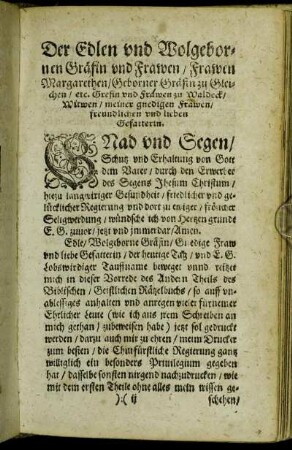 Der Edlen vnd Wolgebor-
nen Gräfin vnd Frawen / Frawen
Margarethen / Geborner Gräfin zu Glei-
chen / etc. Grefin vnd Frawen zu Waldeck /
Witwen / meiner gnedigen Frawen /
freundlichen vnd lieben
Gefatterin.
GNad vnd Segen /
Schutz vnd Erhaltung von Gott
dem Vater / durch den Erwerber
des Segens Jhesum Christum /
hieza langwiriger Gesundheit / friedlicher vnd ge-
lücklicher Regierung vnd dort zu ewiger / frölicher
Seligwerdung / wündsche ich von Hertzen grunde
E. G. zuuor / jetzt vnd jmmerdar / Amen.
Edle / Wolgeborne Gräfin / Gnedige Fraw
vnd liebe Gefatterin / der heutige Tag / vnd E. G.
Lobswirdiger Tauffname beweget vnnd reitzet
mich zu dieser Vorrede des Andern Theils des
Biblischen / Geistlichen Rätzelbuchs / so auff vn-
ablessiges anhalten vnd anregen vieler fürnemer
Ehrlicher Leute (wie ich aus jrem Schreiben an
mich gethan / zubeweisen habe) jetzt sol gedruckt
werden / darzu auch mit zu ehren / meim Drucker
zum besten / die Churfürstliche Regierung gantz
williglich ein besonders Priuilegium gegeben
hat / dasselbe sonsten nirgend nachzudrucken / wie
mit dem ersten Theile ohne alles mein wissen ge-
):( ij schehen /